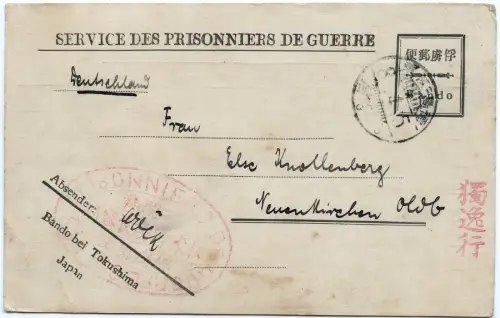 SERVICE DES PRISONNIERS DE GUERRE
便郵虜俘
Bando
Deutschland
Frau
Else Knollenberg
Neuenkirchen Oldb
Absender:
Bando bei Tokushima
Japan
獨逸行